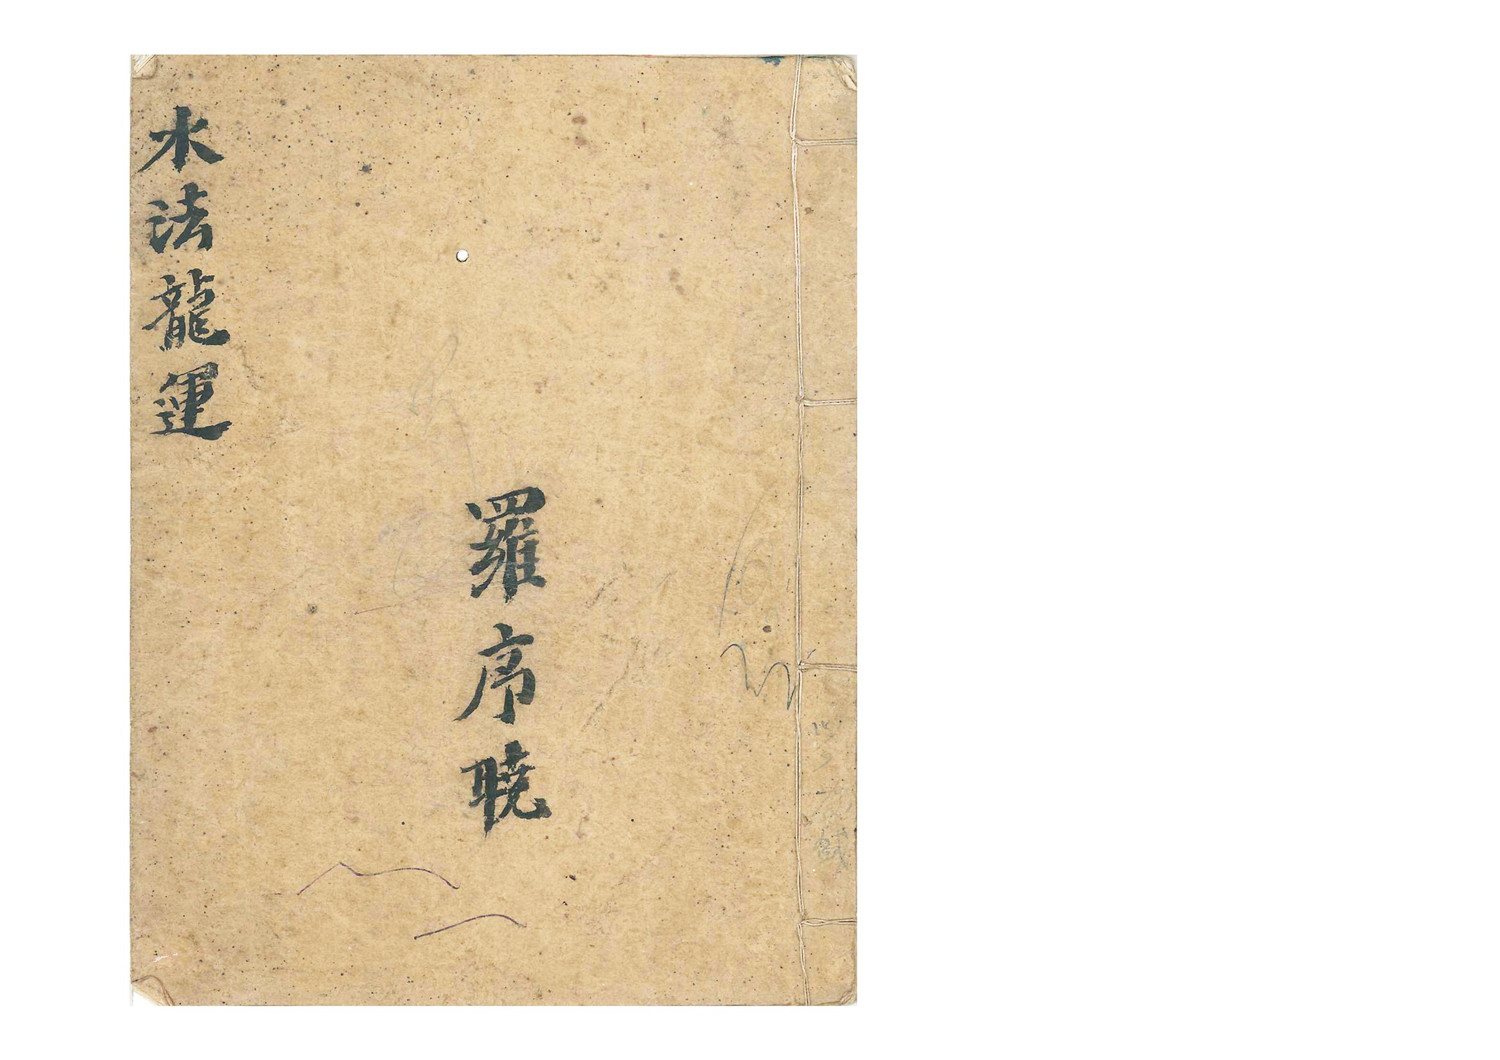 水法龍運
羅序曉